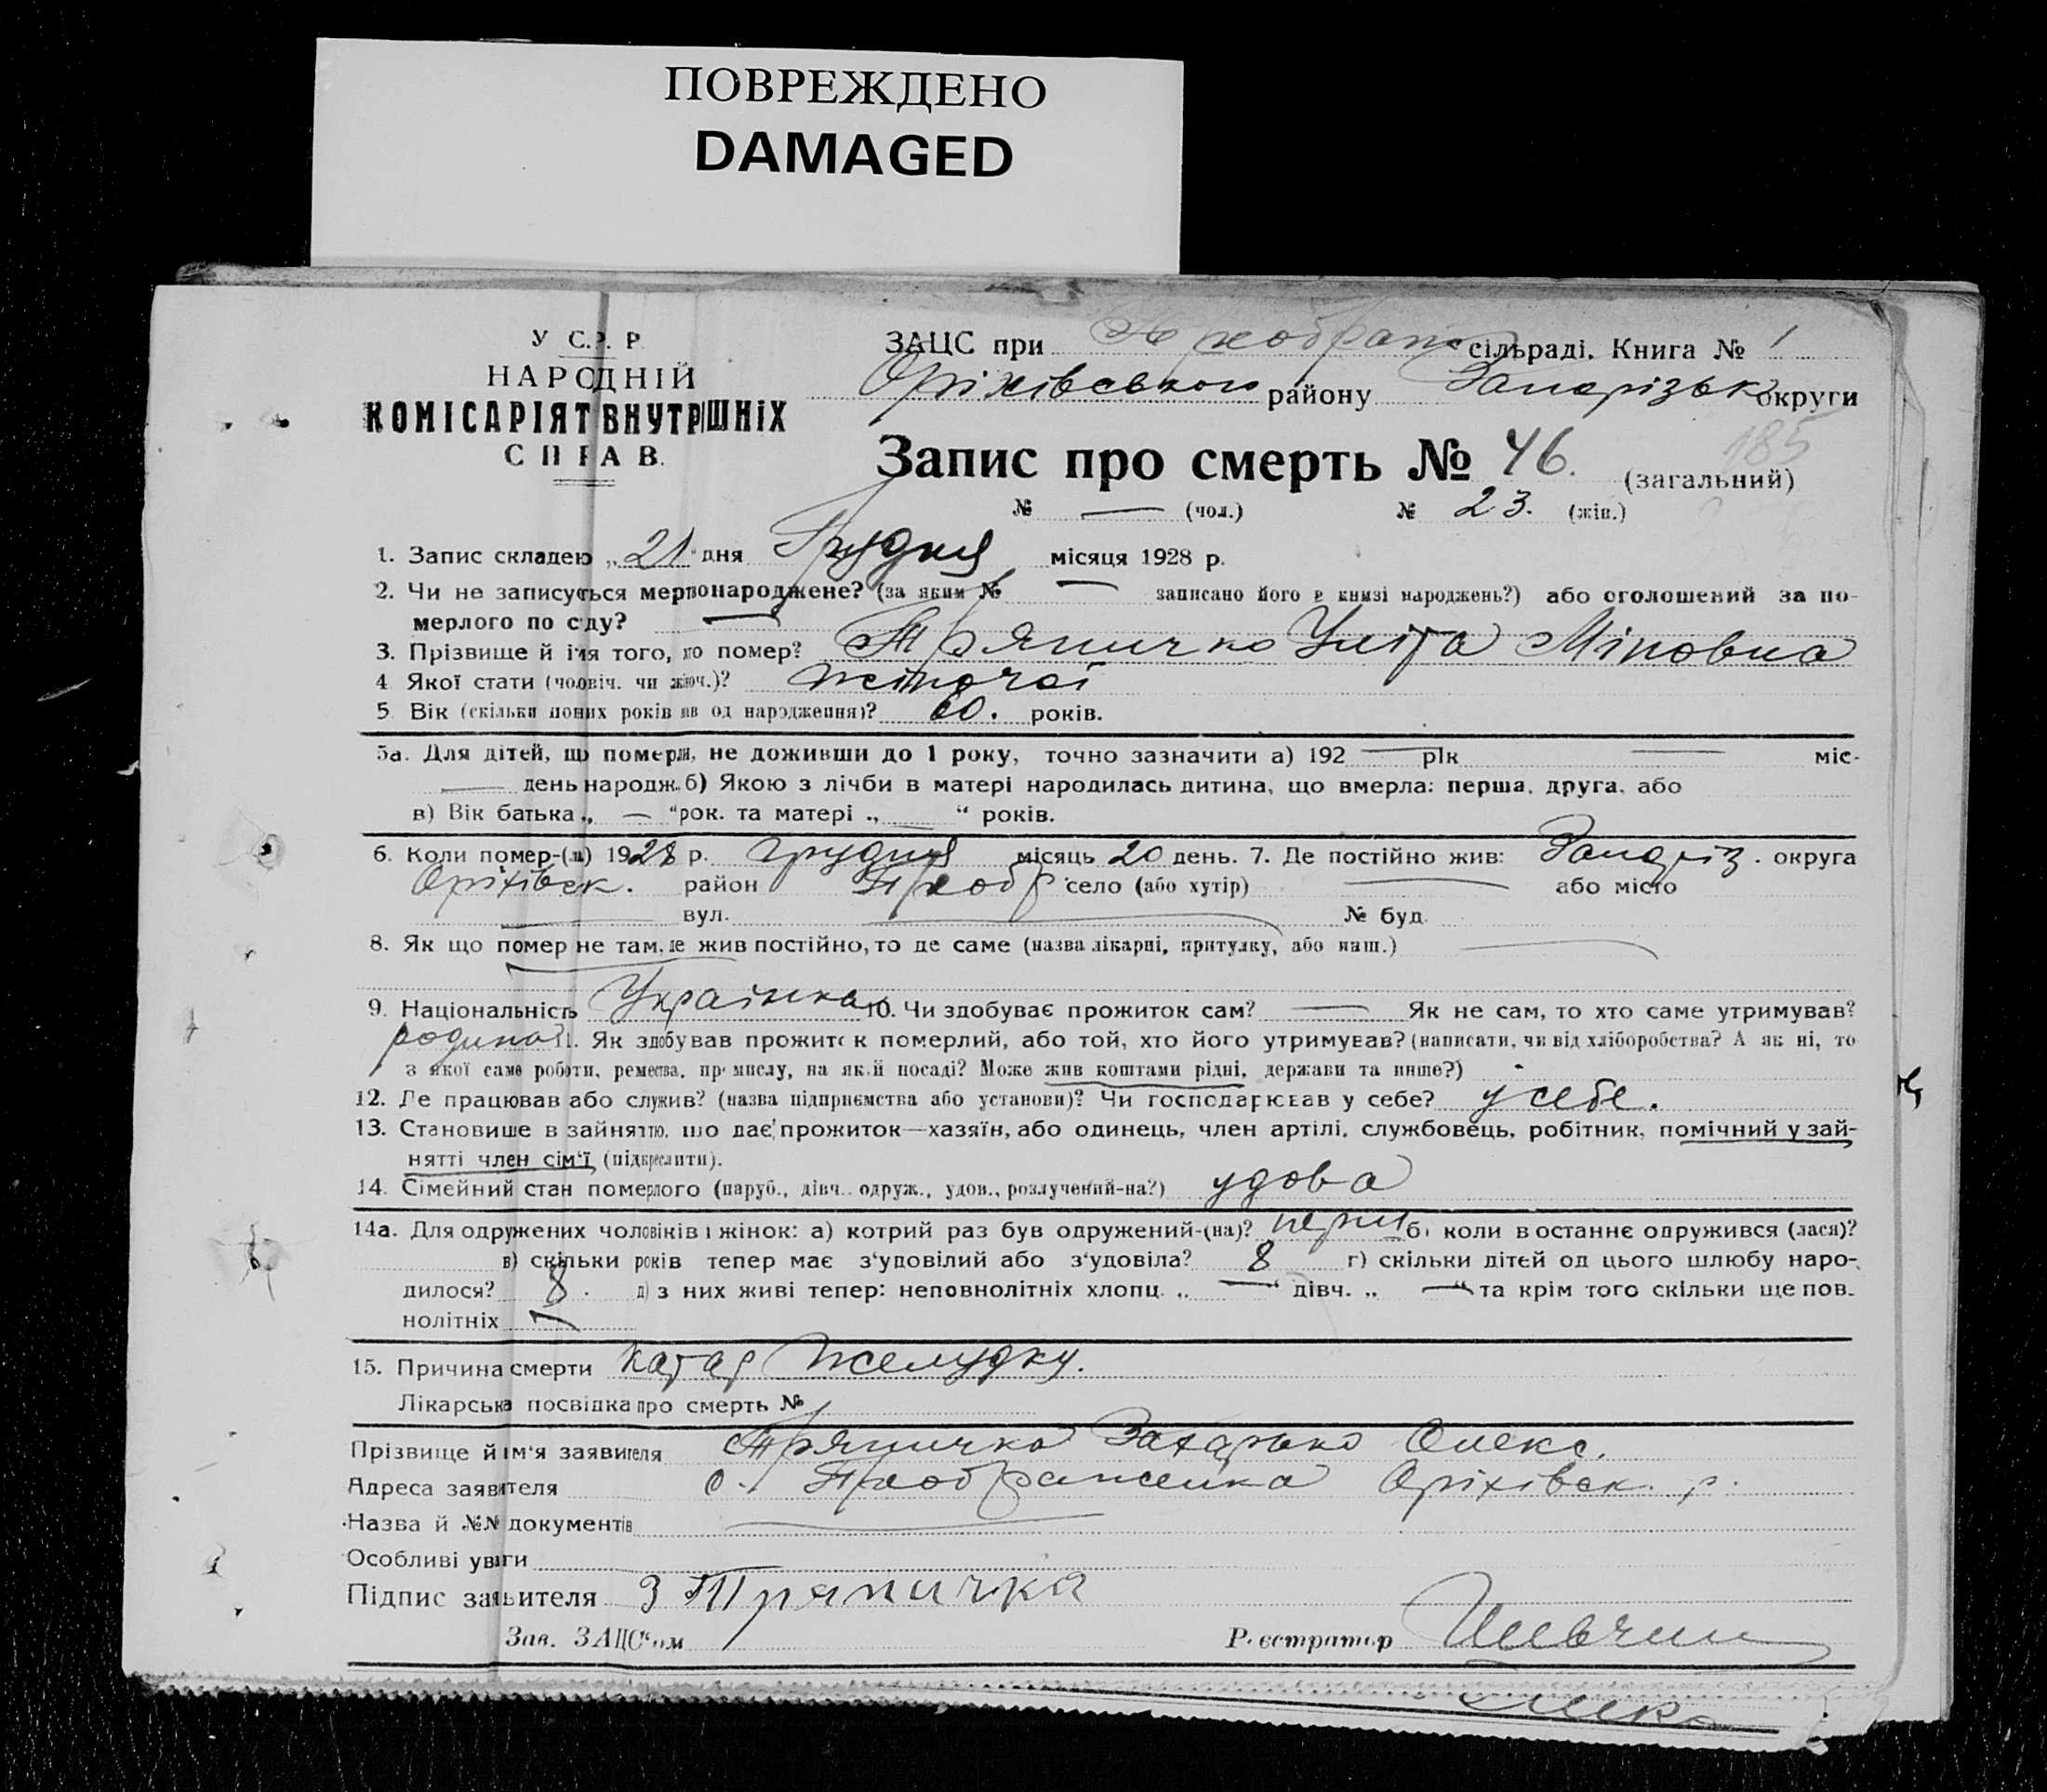 ПОВРЕЖДЕНО
DAMAGED
У С.Р.Р.
НАРОДНІЙ
КОМІСАРІЯТ ВНУТРІШНІХ
СПРАВ.
ЗАЦС при сільраді. Книга № 1
Оріхівського району Запорізьк округи
Запис про смерть № 46. (загальний)
185
№ — (чол.) № 23. (жін.)
1. Запис складено „21" дня Грудня місяця 1928 р.
2. Чи не записується мертвонароджене? (за яким № — записано його в книзі народжень?) або оголошений за по-
мерлого по суду? —
3. Прізвище й ім'я того, хто помер? Тряпичко Уліта Міновна
4 Якої стати (чоловіч. чи жіноч.)? жіночої
5 Вік (скільки повних років мав од народження)? 60. років.
5а. Для дітей, що померли, не доживши до 1 року, точно зазначити а) 192 — рік — міс-
— день народж. б) Якою з лічби в матері народилась дитина, що вмерла: перша, друга, або
в) Вік батька „ — "рок. та матері „ — " років.
6. Коли помер-(ла) 1928 р. грудня місяць 20 день. 7. Де постійно жив: Запоріз. округа
Оріхівськ. район Преобр село (або хутір) — або місто
— вул. — № буд.
8. Як що помер не там, де жив постійно, то де саме (назва лікарні, притулку, або инш.) —
9. Національність Українка 10. Чи здобуває прожиток сам? — Як не сам, то хто саме утримував?
родина 11. Як здобував прожиток померлий, або той, хто його утримував? (написати, чи від хліборобства? А як ні, то
з якої саме роботи, ремества, промислу, на якій посаді? Може жив коштами рідні, держави та инше?)
12. Де працював або служив? (назва підприємства або установи)? Чи господарював у себе? у себе.
13. Становище в зайняттю, що дає прожиток—хазяїн, або одинець, член артілі, службовець, робітник, помічний у зай-
нятті член сім'ї (підкреслити).
14. Сімейний стан померлого (паруб., дівч. одруж., удов., розлучений-на?) удова
14а. Для одружених чоловіків і жінок: а) котрий раз був одружений-(на)? перш б) коли востаннє одружився (лася)?
в) скільки років тепер має з'удовілий або з'удовіла? 8 г) скільки дітей од цього шлюбу наро-
дилося? 8. д) з них живі тепер: неповнолітніх хлопц. „ — " дівч. „ — " та крім того скільки ще пов-
нолітніх —
15. Причина смерти катар желудку.
Лікарська посвідка про смерть №
Прізвище й ім'я заявителя Тряпичка Захарько Олекс.
Адреса заявителя с. Преображенка Оріхівськ. р.
Назва й №№ документів —
Особливі уваги
Підпис заявителя З Тряпичка
Зав. ЗАЦС'ом Реєстратор